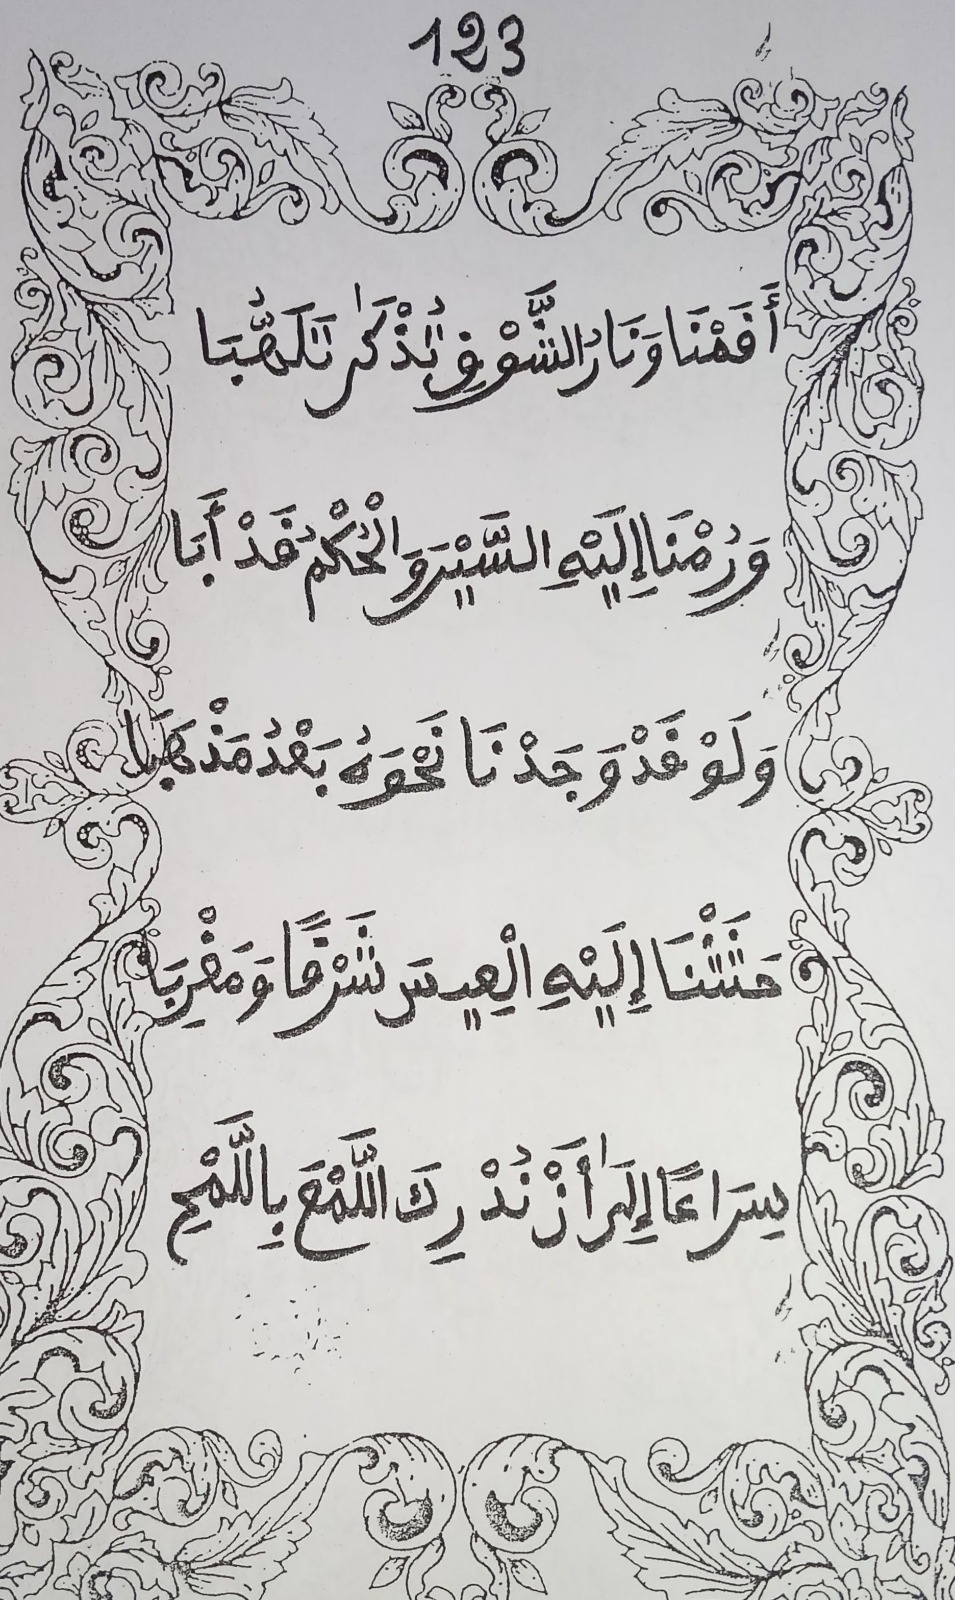 123
أَفَمْنَا وَنَارُ الشَّوْفِ بِالذِّكْرِ تَلَهُّبَا
وَرُمْنَا إِلَيْهِ السَّيْرَ وَالْحُكْمُ فَدْ أَبَا
وَلَوْ فَدْ وَجَدْنَا نَحْوَهُ بَعْدُ مَذْهَبَا
حَثَثْنَا إِلَيْهِ الْعِيسَ شَرْفًا وَمَغْرِبَا
سِرَاعًا إِلَى أَنْ نُدْرِكَ اللَّمْحَ بِاللَّمْحِ